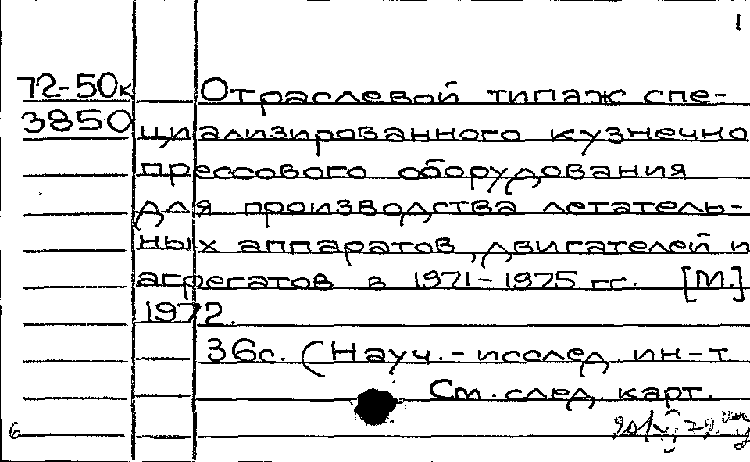 1
72-50к Отраслевой типаж спе-
3850 циализированного кузнечно
прессового оборудования
для производства летатель-
ных аппаратов, двигателей и
агрегатов в 1971-1975 гг. [М.]
1972.
36с. (Науч.-исслед ин-т
См. след карт.
6